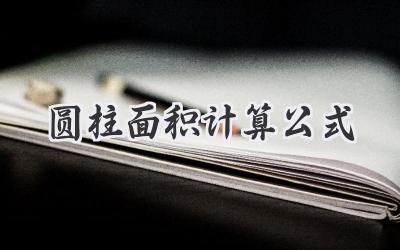 圆柱面积计算公式